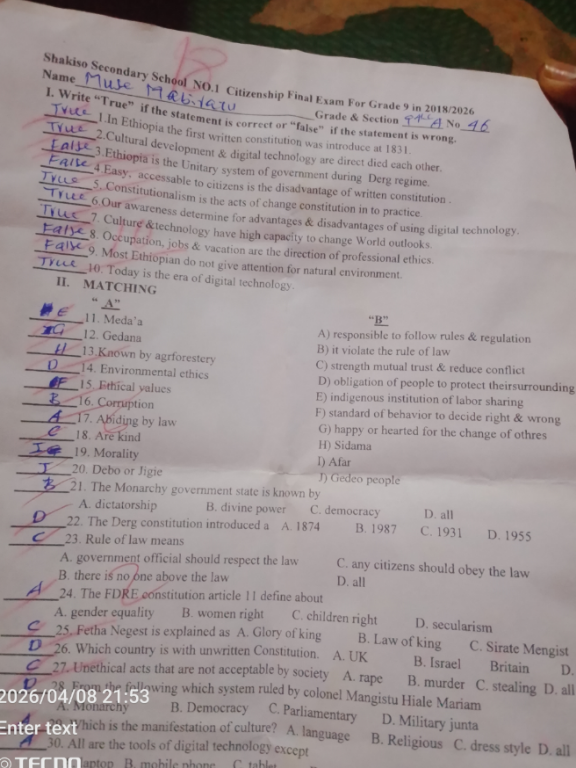 B
Shakiso Secondary School NO.1 Citizenship Final Exam For Grade 9 in 2018/2026
Name Muse Grade & Section 9th A No 46
I. Write "True" if the statement is correct or "false" if the statement is wrong.
True 1.In Ethiopia the first written constitution was introduce at 1831.
True 2.Cultural development & digital technology are direct died each other.
False 3.Ethiopia is the Unitary system of government during Derg regime.
False 4 Easy, accessable to citizens is the disadvantage of written constitution .
True 5. Constitutionalism is the acts of change constitution in to practice
True 6.Our awareness determine for advantages & disadvantages of using digital technology.
True 7. Culture &technology have high capacity to change World outlooks.
False 8. Occupation, jobs & vacation are the direction of professional ethics.
False 9. Most Ethiopian do not give attention for natural environment.
True 10. Today is the era of digital technology.
II. MATCHING
"A" "B"
E 11. Meda'a A) responsible to follow rules & regulation
G 12. Gedana B) it violate the rule of law
H 13.Known by agrforestery C) strength mutual trust & reduce conflict
D 14. Environmental ethics D) obligation of people to protect theirsurrounding
F 15. Ethical values E) indigenous institution of labor sharing
B 16. Corruption F) standard of behavior to decide right & wrong
A 17. Abiding by law G) happy or hearted for the change of othres
C 18. Are kind H) Sidama
I 19. Morality I) Afar
J 20. Debo or Jigie J) Gedeo people
B 21. The Monarchy government state is known by
A. dictatorship B. divine power C. democracy D. all
D 22. The Derg constitution introduced a A. 1874 B. 1987 C. 1931 D. 1955
C 23. Rule of law means
A. government official should respect the law C. any citizens should obey the law
B. there is no one above the law D. all
A 24. The FDRE constitution article 11 define about
A. gender equality B. women right C. children right D. secularism
C 25. Fetha Negest is explained as A. Glory of king B. Law of king C. Sirate Mengist
D 26. Which country is with unwritten Constitution. A. UK B. Israel Britain D.
C 27. Unethical acts that are not acceptable by society A. rape B. murder C. stealing D. all
D 28. From the following which system ruled by colonel Mangistu Hiale Mariam
A. Monarchy B. Democracy C. Parliamentary D. Military junta
29. Which is the manifestation of culture? A. language B. Religious C. dress style D. all
A 30. All are the tools of digital technology except
laptop B. mobile phone C. tablet
2026/04/08 21:53
Enter text
TECNO